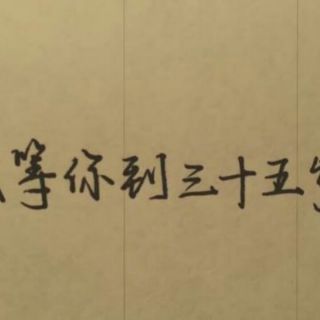 等你到三十五